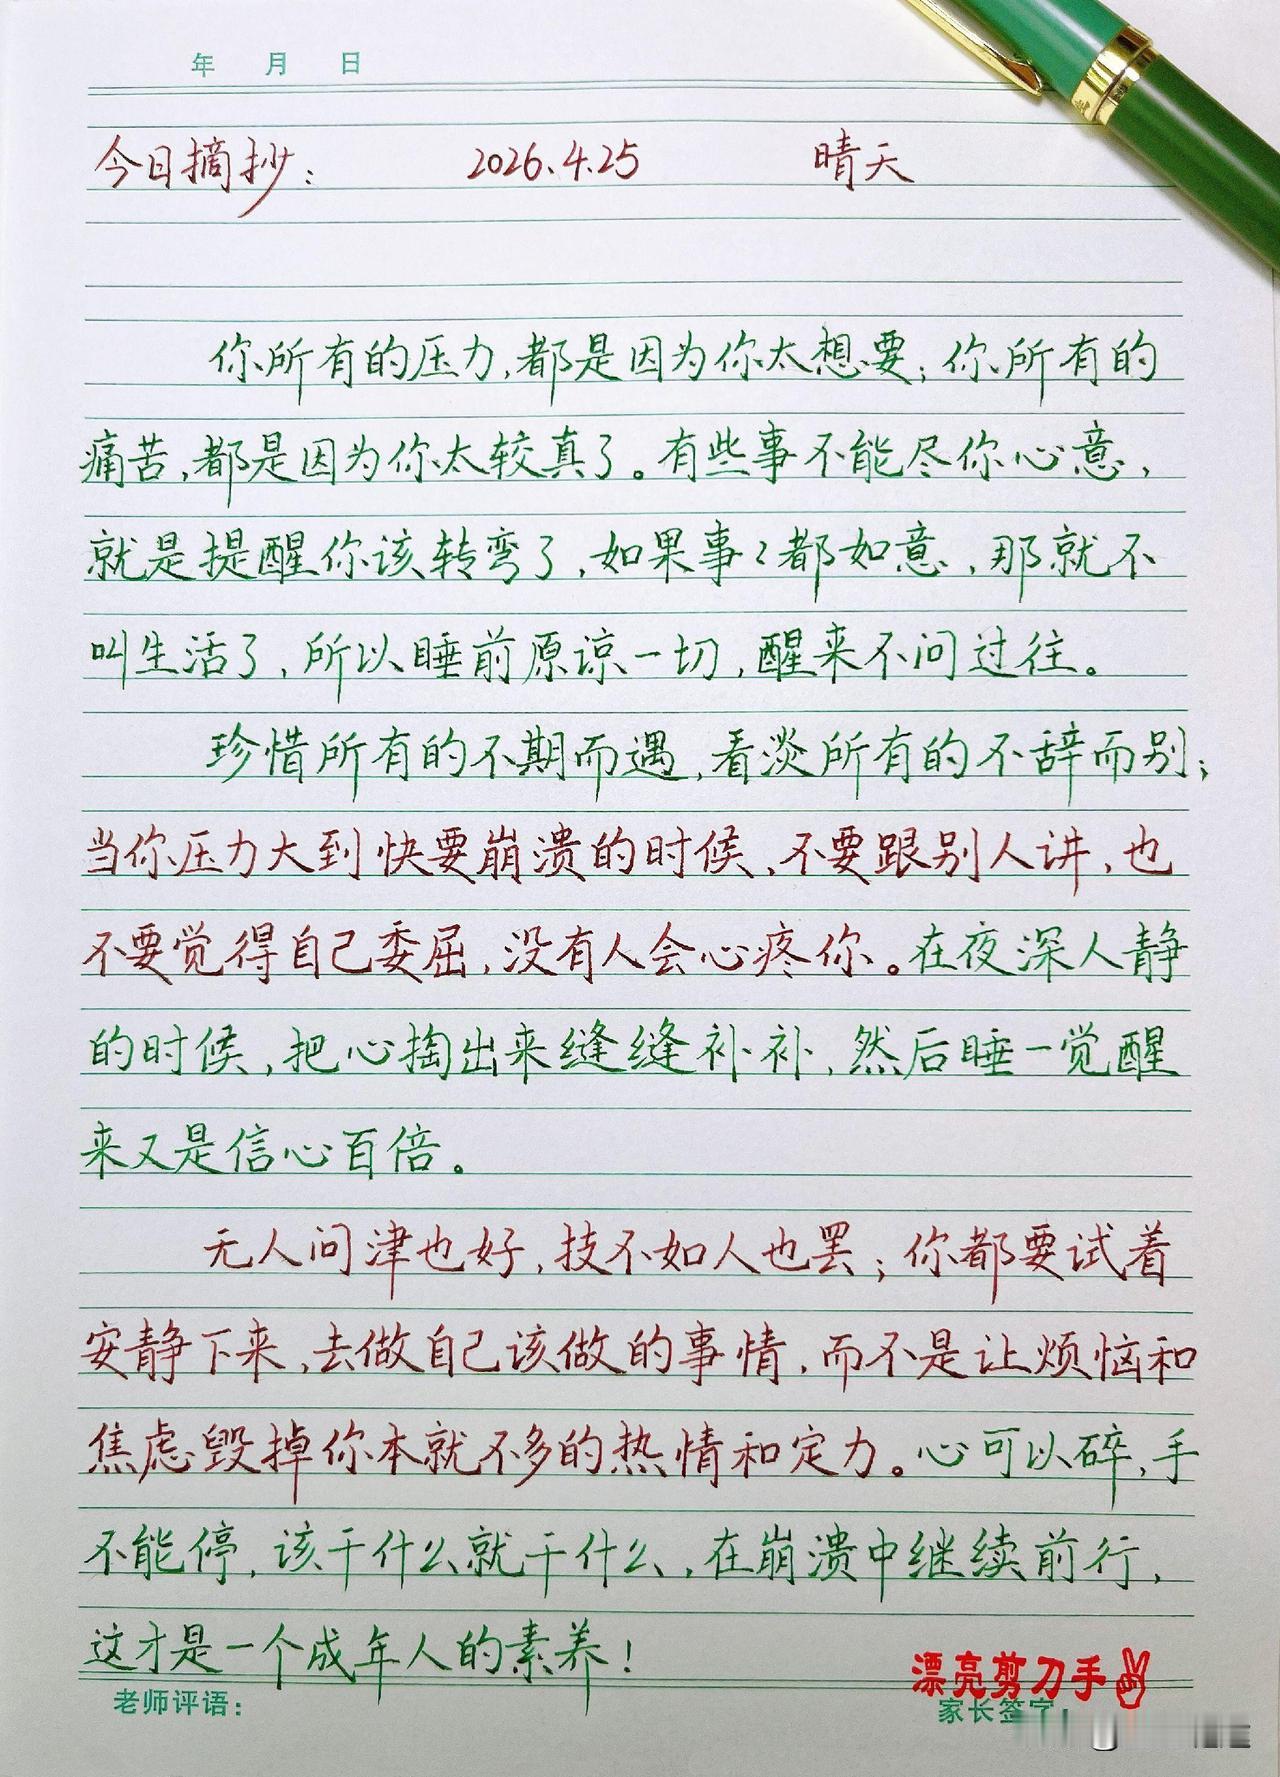 年 月 日
今日摘抄： 2026.4.25 晴天
你所有的压力,都是因为你太想要;你所有的
痛苦,都是因为你太较真了。有些事不能尽你心意,
就是提醒你该转弯了,如果事々都如意,那就不
叫生活了,所以睡前原谅一切,醒来不问过往。
珍惜所有的不期而遇,看淡所有的不辞而别;
当你压力大到快要崩溃的时候,不要跟别人讲,也
不要觉得自己委屈,没有人会心疼你。在夜深人静
的时候,把心掏出来缝缝补补,然后睡一觉醒
来又是信心百倍。
无人问津也好,技不如人也罢;你都要试着
安静下来,去做自己该做的事情,而不是让烦恼和
焦虑毁掉你本就不多的热情和定力。心可以碎,手
不能停,该干什么就干什么,在崩溃中继续前行,
这才是一个成年人的素养!
漂亮剪刀手
老师评语： 家长签字